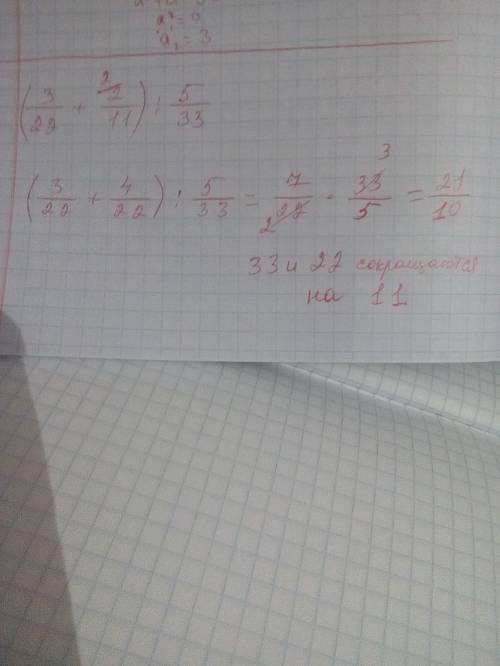 a² = 0
a₂ = 3
(3/22 + 2/11) : 5/33
2
(3/22 + 4/22) : 5/33 = 7/22 · 33/5 = 21/10
2 3
33 и 22 сокращаются
на 11